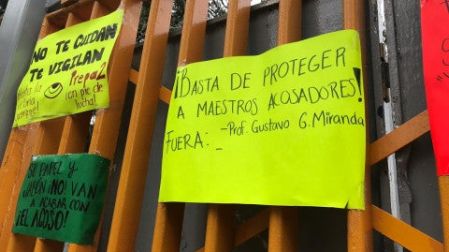 NO TE CUIDAN
TE VIGILAN
Prepa 2
en pie de
lucha!
¡BASTA DE PROTEGER
A MAESTROS ACOSADORES!
FUERA: -Prof. Gustavo G. Miranda
-
PAPEL Y
JABÓN ¡NO! VAN
A ACABAR CON
¡EL ACOSO!